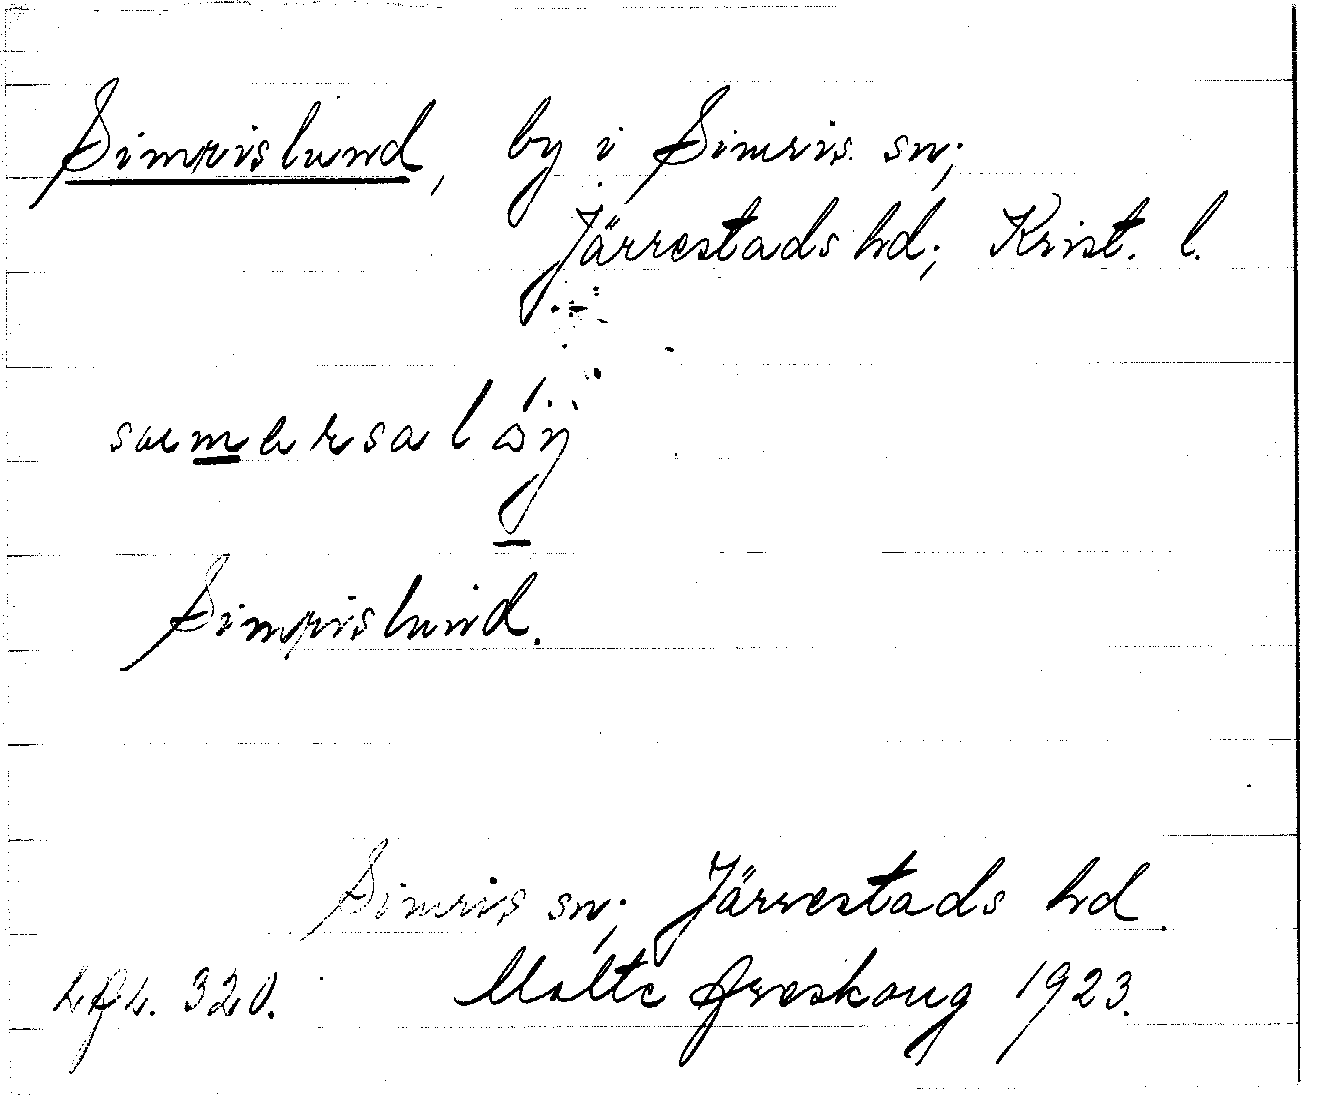 Simrislund, by i Simris sn;
Järrestads hd; Krist. l.
Simrislund.
Simris sn; Järrestads hd.
320. Malte Areskoug 1923.